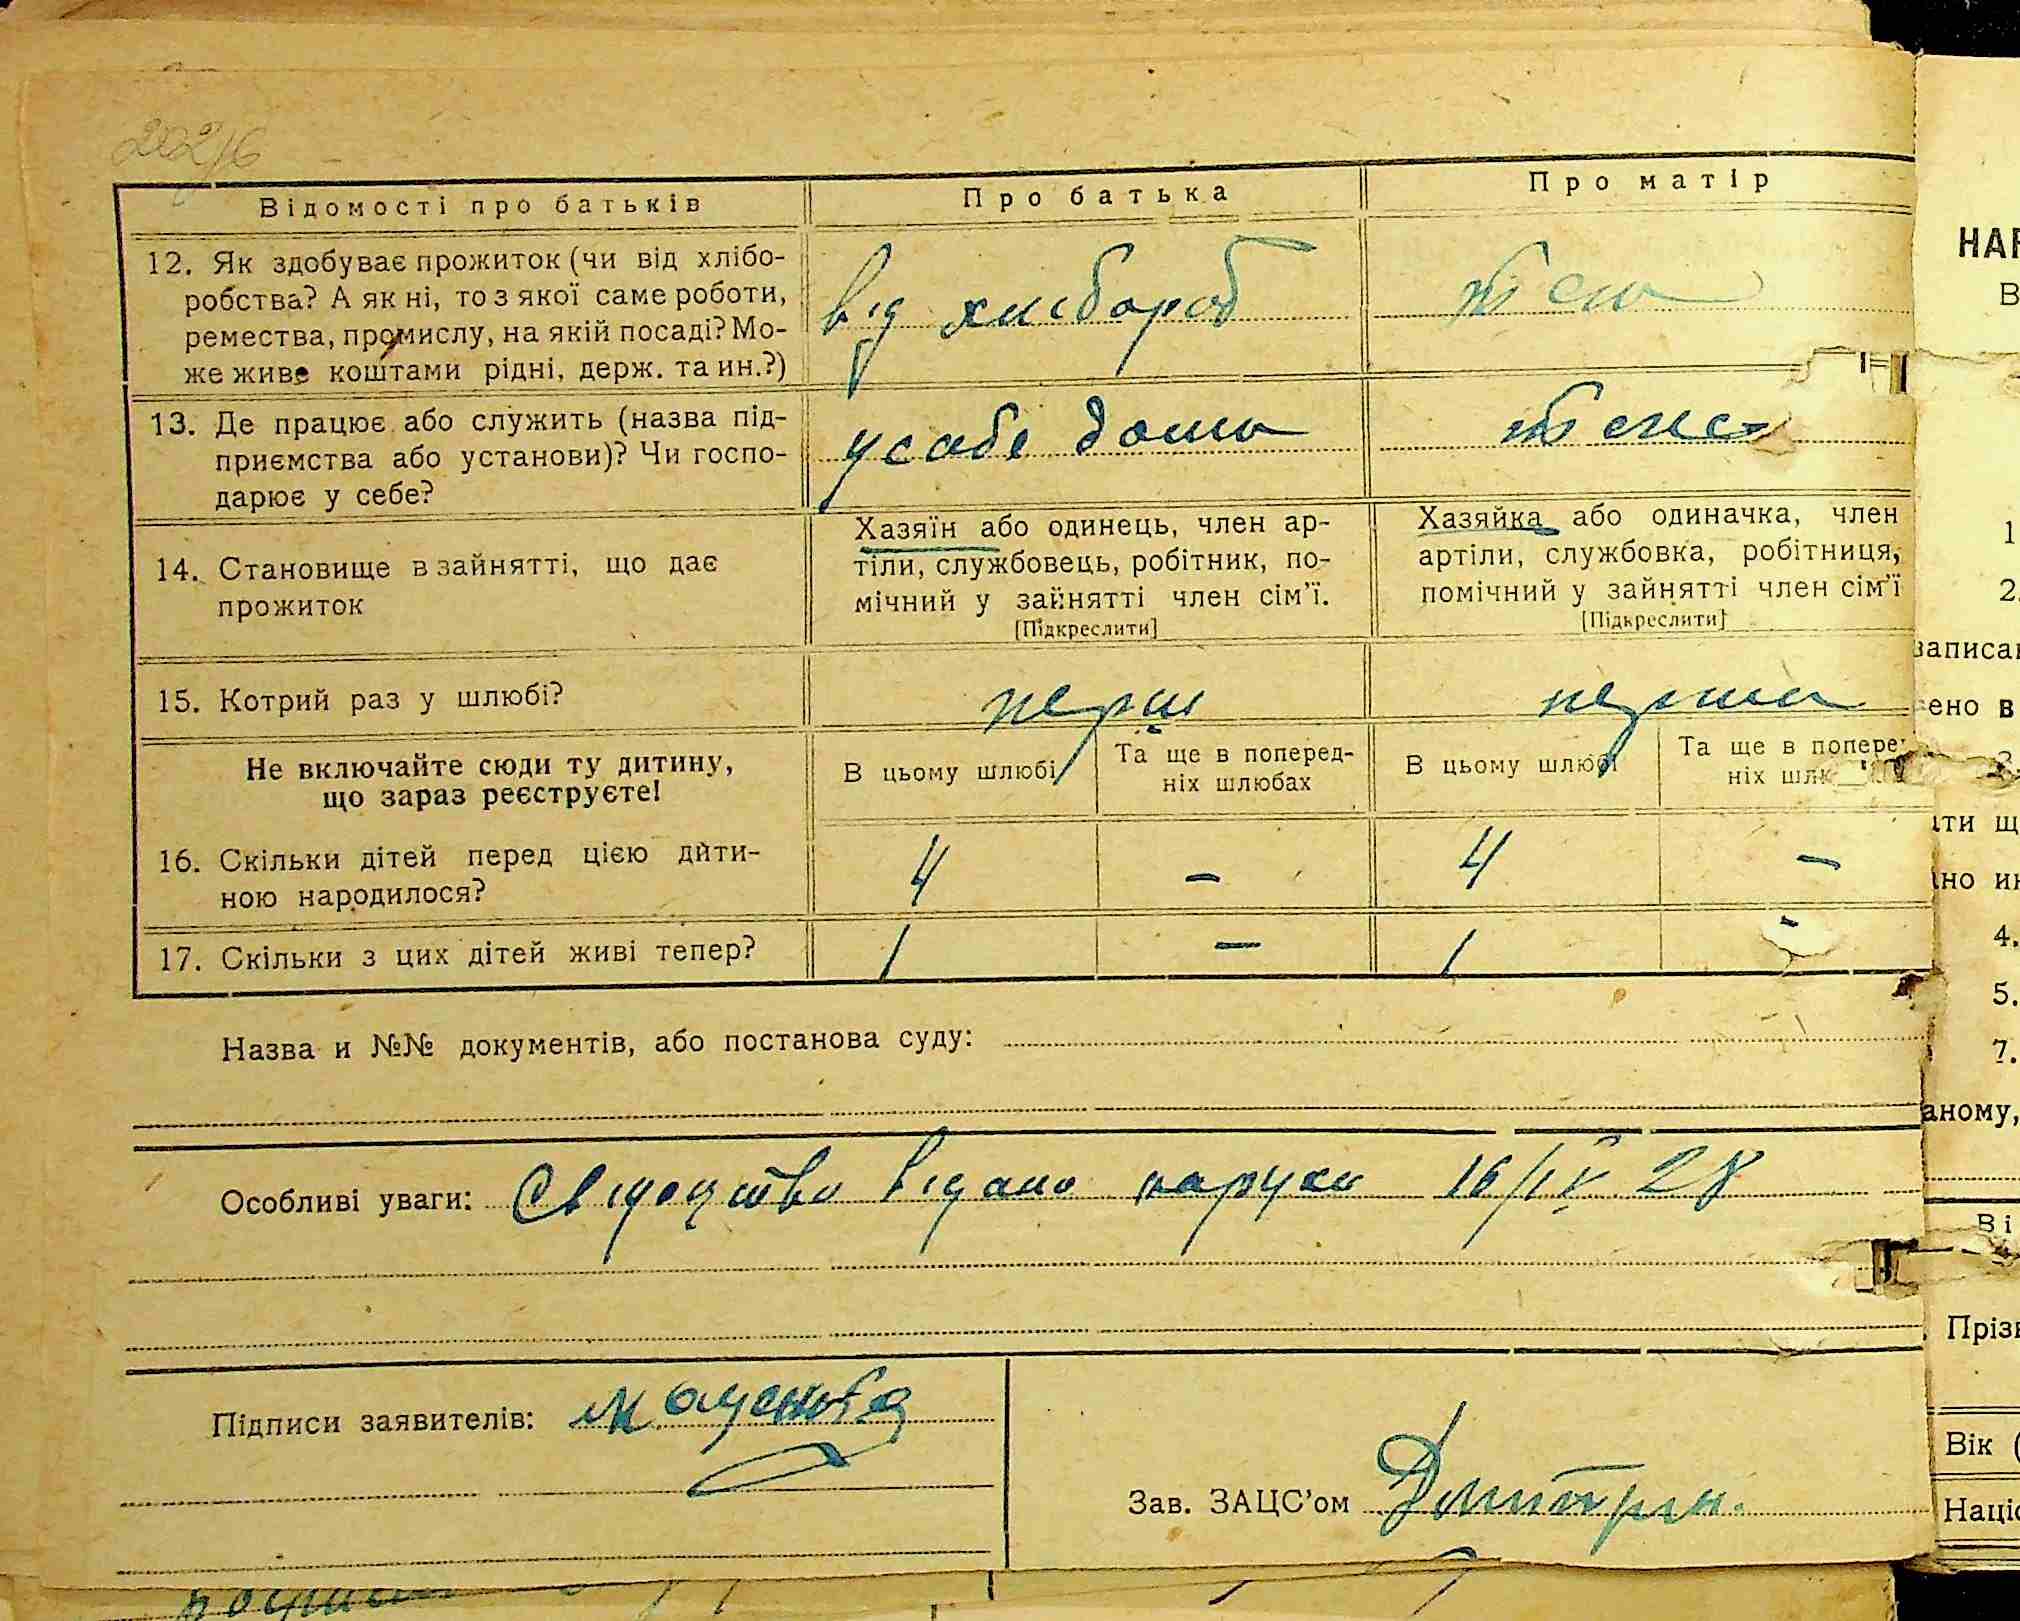 Відомості про батьків
Про батька
Про матір
12. Як здобуває прожиток (чи від хлібо-
робства? А як ні, то з якої саме роботи,
ремества, промислу, на якій посаді? Мо-
же живе коштами рідні, держ. та ин.?)
від хлібороб
13. Де працює або служить (назва під-
приємства або установи)? Чи госпо-
дарює у себе?
у себе дома
14. Становище в зайнятті, що дає
прожиток
Хазяїн або одинець, член ар-
тіли, службовець, робітник, по-
мічний у зайнятті член сім'ї.
[Підкреслити]
Хазяйка або одиначка, член
артіли, службовка, робітниця,
помічний у зайнятті член сім'ї
[Підкреслити]
15. Котрий раз у шлюбі?
перш
перша
Не включайте сюди ту дитину,
що зараз реєструєте!
В цьому шлюбі
Та ще в поперед-
ніх шлюбах
В цьому шлюбі
Та ще в попере
ніх шлю
16. Скільки дітей перед цією дити-
ною народилося?
4
-
4
-
17. Скільки з цих дітей живі тепер?
1
-
1
-
Назва и №№ документів, або постанова суду:
Особливі уваги: Свідоцтво видано наруки 16/IV 28
Підписи заявителів:
Зав. ЗАЦС'ом
НАР
В
1
2.
записан
ено в
3.
ати щ
но ин
4.
5.
7.
аному,
Ві
Прізв
Вік (
Націо